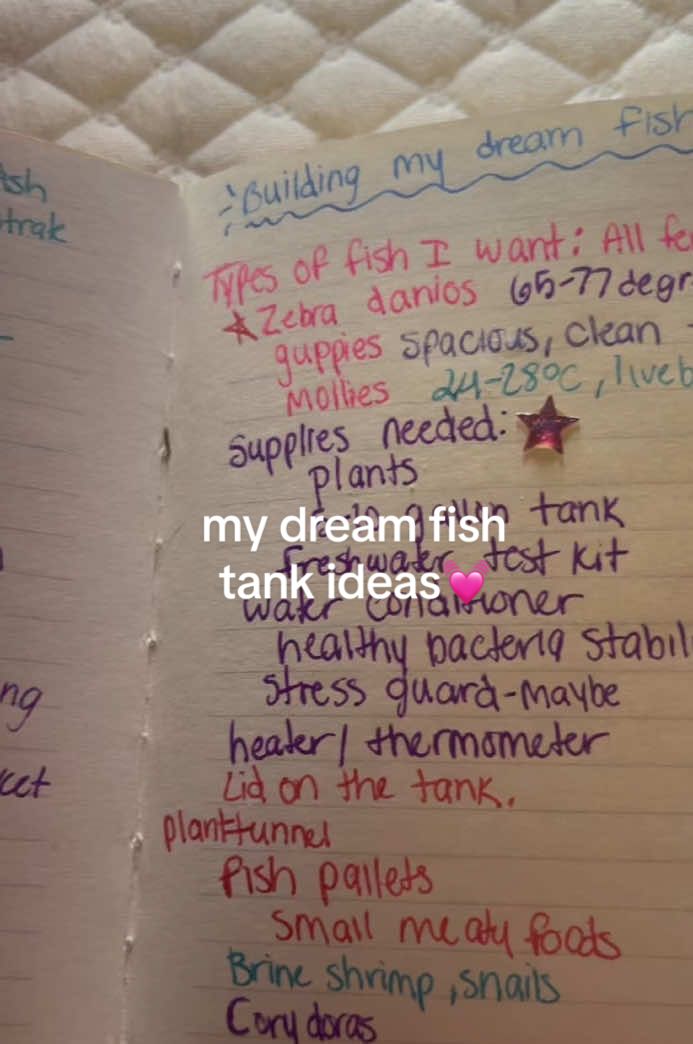 Building my dream fish
Types of fish I want: All fe
Zebra danios 65-77 degr
guppies spacious, clean
Mollies 24-28°C, liveb
Supplies needed:
plants
tank
my dream fish
freshwater test kit
tank ideas💓
water conditioner
healthy bacteria stabil
stress guard-maybe
heater/ thermometer
Lid on the tank.
plant tunnel
fish pallets
small meaty foods
Brine shrimp, snails
Cory doras
ash
trak
ng
ket